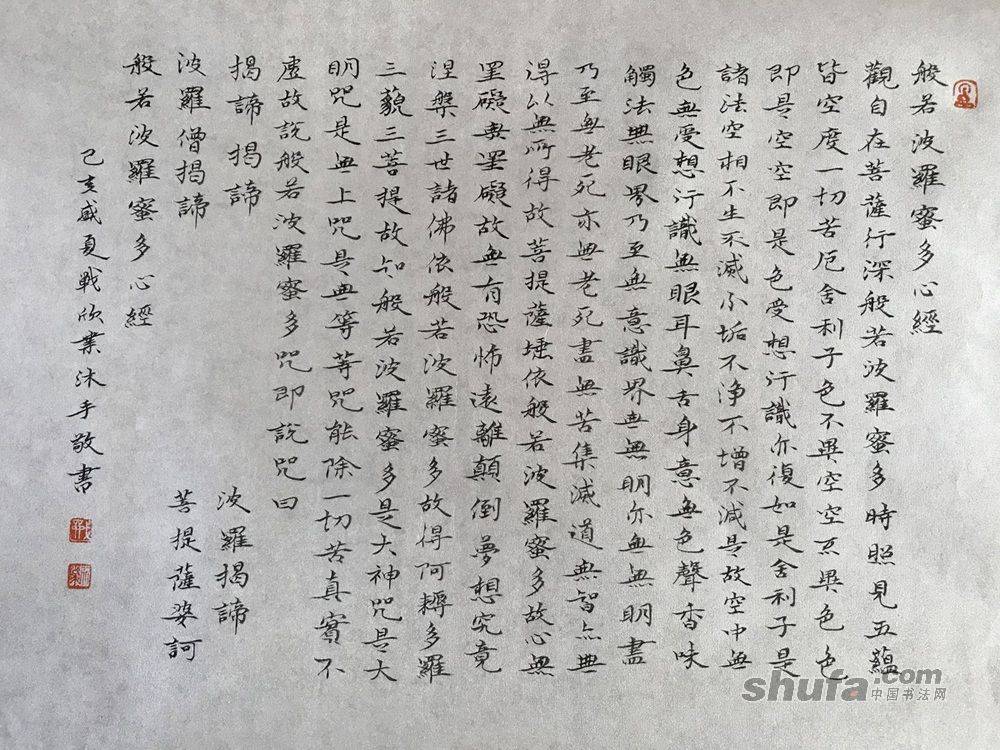 般若波羅蜜多心經
觀自在菩薩行深般若波羅蜜多時照見五蘊
皆空度一切苦厄舍利子色不異空空不異色色
即是空空即是色受想行識亦復如是舍利子是
諸法空相不生不滅不垢不淨不增不減是故空中無
色無受想行識無眼耳鼻舌身意無色聲香味
觸法無眼界乃至無意識界無無明亦無無明盡
乃至無老死亦無老死盡無苦集滅道無智亦無
得以無所得故菩提薩埵依般若波羅蜜多故心無
罣礙無罣礙故無有恐怖遠離顛倒夢想究竟
涅槃三世諸佛依般若波羅蜜多故得阿耨多羅
三藐三菩提故知般若波羅蜜多是大神咒是大
明咒是無上咒是無等等咒能除一切苦真實不
虛故說般若波羅蜜多咒即說咒曰
揭諦揭諦 波羅揭諦
波羅僧揭諦 菩提薩婆訶
般若波羅蜜多心經
己亥盛夏戰欣業沐手敬書
shufa.com
中国书法网